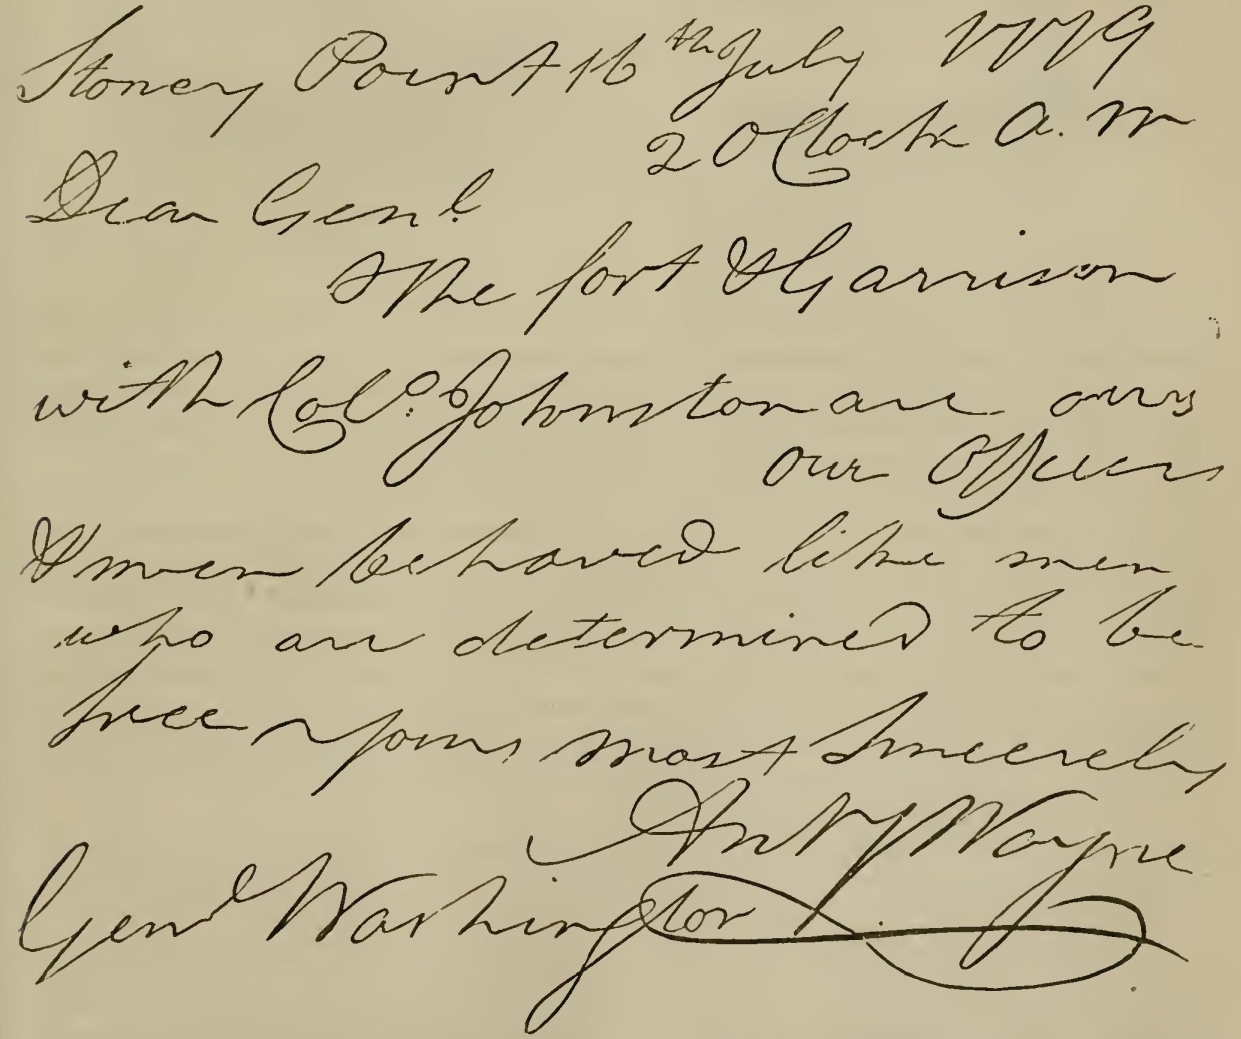 Stoney Point 16th July 1779
2 OClock a.m
Dear Genl
The fort & Garrison
with Colo. Johnston are ours
our Officers
& men behaved like men
who are determined to be
free yours most Sincerely
Anty Wayne
Genl Washington